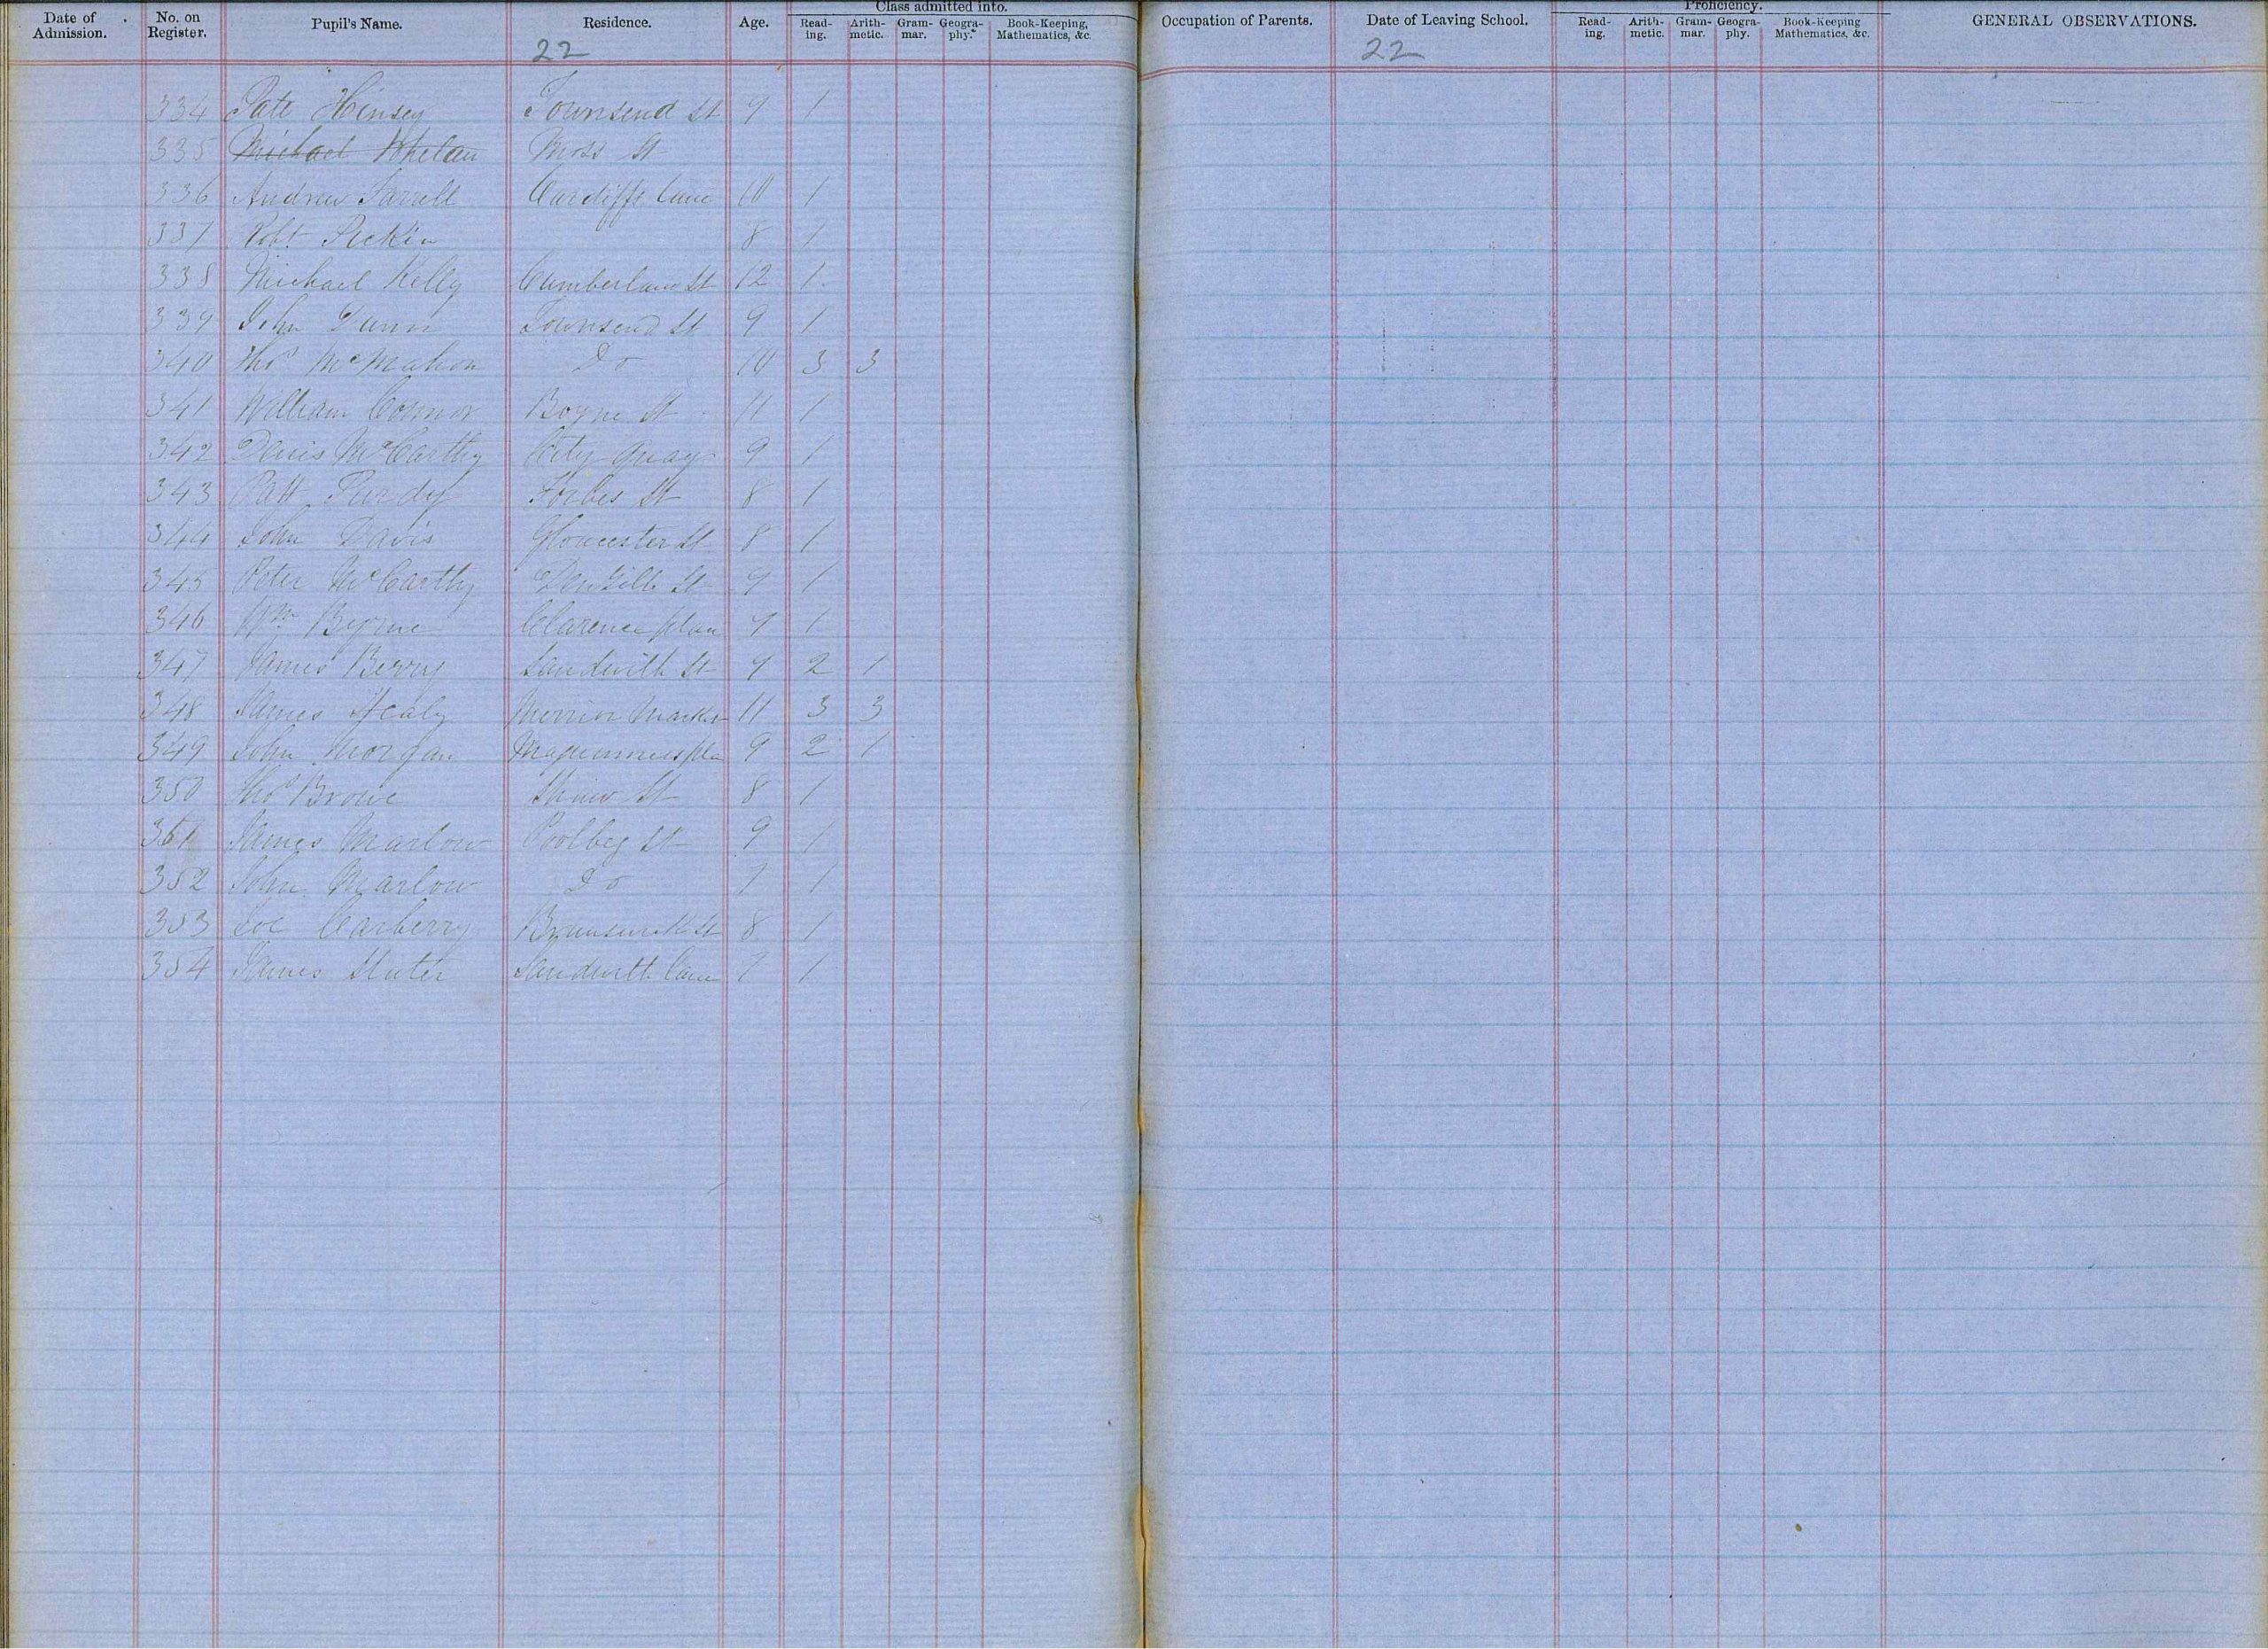 Class admitted into. Proficiency.
Date of Admission. No. on Register. Pupil's Name. Residence. Age. Read-ing. Arith-metic. Gram-mar. Geogra-phy. Book-Keeping, Mathematics, &c. Occupation of Parents. Date of Leaving School. Read-ing. Arith-metic. Gram-mar. Geogra-phy. Book-Keeping Mathematics, &c. GENERAL OBSERVATIONS.
22 22
334 Patt Hinsey Townsend St 9 1
335 Michael Whelan Moss St
336 Andrew Farrell Cardiffs Lane 10 1
337 Robt 8 1
338 Michael Kelly Cumberland St 12 1
339 John Dunn Townsend St 9 1
340 Thos McMahon Do 10 3 3
341 William Connor Boyne St 11 1
342 Denis McCarthy City Quay 9 1
343 Patt Purdy Forbes St 8 1
344 John Davis Gloucester St 8 1
345 Peter McCarthy Denzille St 9 1
346 Wm Byrne Clarence place 9 1
347 James Berry Sandwith St 9 2 1
348 James Healy Merrion Market 11 3 3
349 John Morgan 9 2 1
350 Thos Browe Shaw St 8 1
351 James Marlow Poolbeg St 9 1
352 John Marlow Do 7 1
353 Joe Carberry Brunswick St 8 1
354 James Slater Sandwith Lane 7 1